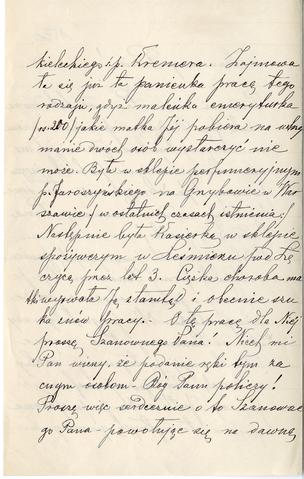 kieleckiego ś.p. Kremera. Zajmowa
ła się już ta panienka pracą tego
rodzaju, gdyż maleńka emeryturka
/rs. 200/ jakie matka Jej pobiera na utrzy
manie dwóch osób wystarczyć nie
może. Była w sklepie perfumeryjnym
p. Jaroszyńskiego na Grzybowie w War
szawie / w ostatnich czasach istnienia /
Następnie była Kasjerką w sklepie
spożywczym w Leśmierzu pod Łę
czycą przez lat 3. Ciężka choroba ma
tki wyrwała Ją stamtąd i obecnie szu
ka znów pracy. - O tę pracę dla Niej
proszę Szanownego Pana! Niech mi
Pan wierzy, że podanie ręki tym za
cnym osobom - Bóg Panu policzy!
Proszę więc serdecznie o to Szanowne
go Pana - powołując się na dawną